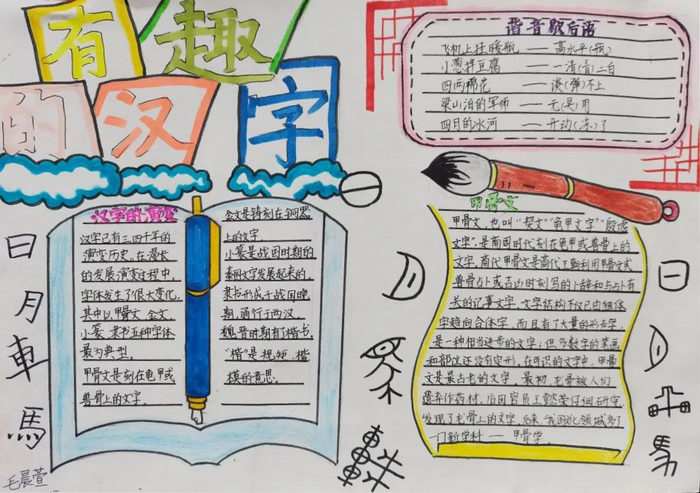 有趣
的汉字
谐音歇后语
飞机上挂暖瓶 —— 高水平(瓶)
小葱拌豆腐 —— 一清(青)二白
四两棉花 —— 谈(弹)不上
梁山泊的军师 —— 无(吴)用
四月的冰河 —— 开动(冻)了
汉字的演变
汉字已有三四千年的
演变历史,在漫长
的发展演变过程中,
字体发生了很大变化,
其中以甲骨文 金文
小篆 隶书五种字体
最为典型。
甲骨文是刻在龟甲或
兽骨上的文字。
金文是铸刻在铜器
上的文字。
小篆是战国时期的
秦国文字发展起来的,
隶书形成于战国晚
期,通行于两汉。
魏晋时期有了楷书。
"楷"是规矩 楷
模的意思。
甲骨文
甲骨文,也叫"契文""龟甲文字""殷虚
文字",是商国时代刻在龟甲或兽骨上的
文字,商代甲骨文是商代王朝利用龟甲或
兽骨占卜或吉凶时刻写的卜辞和与占卜有
关的记事文字,文字结构不仅已由独体
字趋向合体字,而且有了大量的形声字,
是一种相当进步的文字;但多数字的笔画
和部位还没有定形。在可识的文字中,甲骨
文是最古老的文字。最初,龟骨被人们
遗弃作药材,后国官员王懿荣仔细研究
发现了龟骨上的文字,后来
一门新学科 —— 甲骨学。
日
月
車
馬
毛晨萱